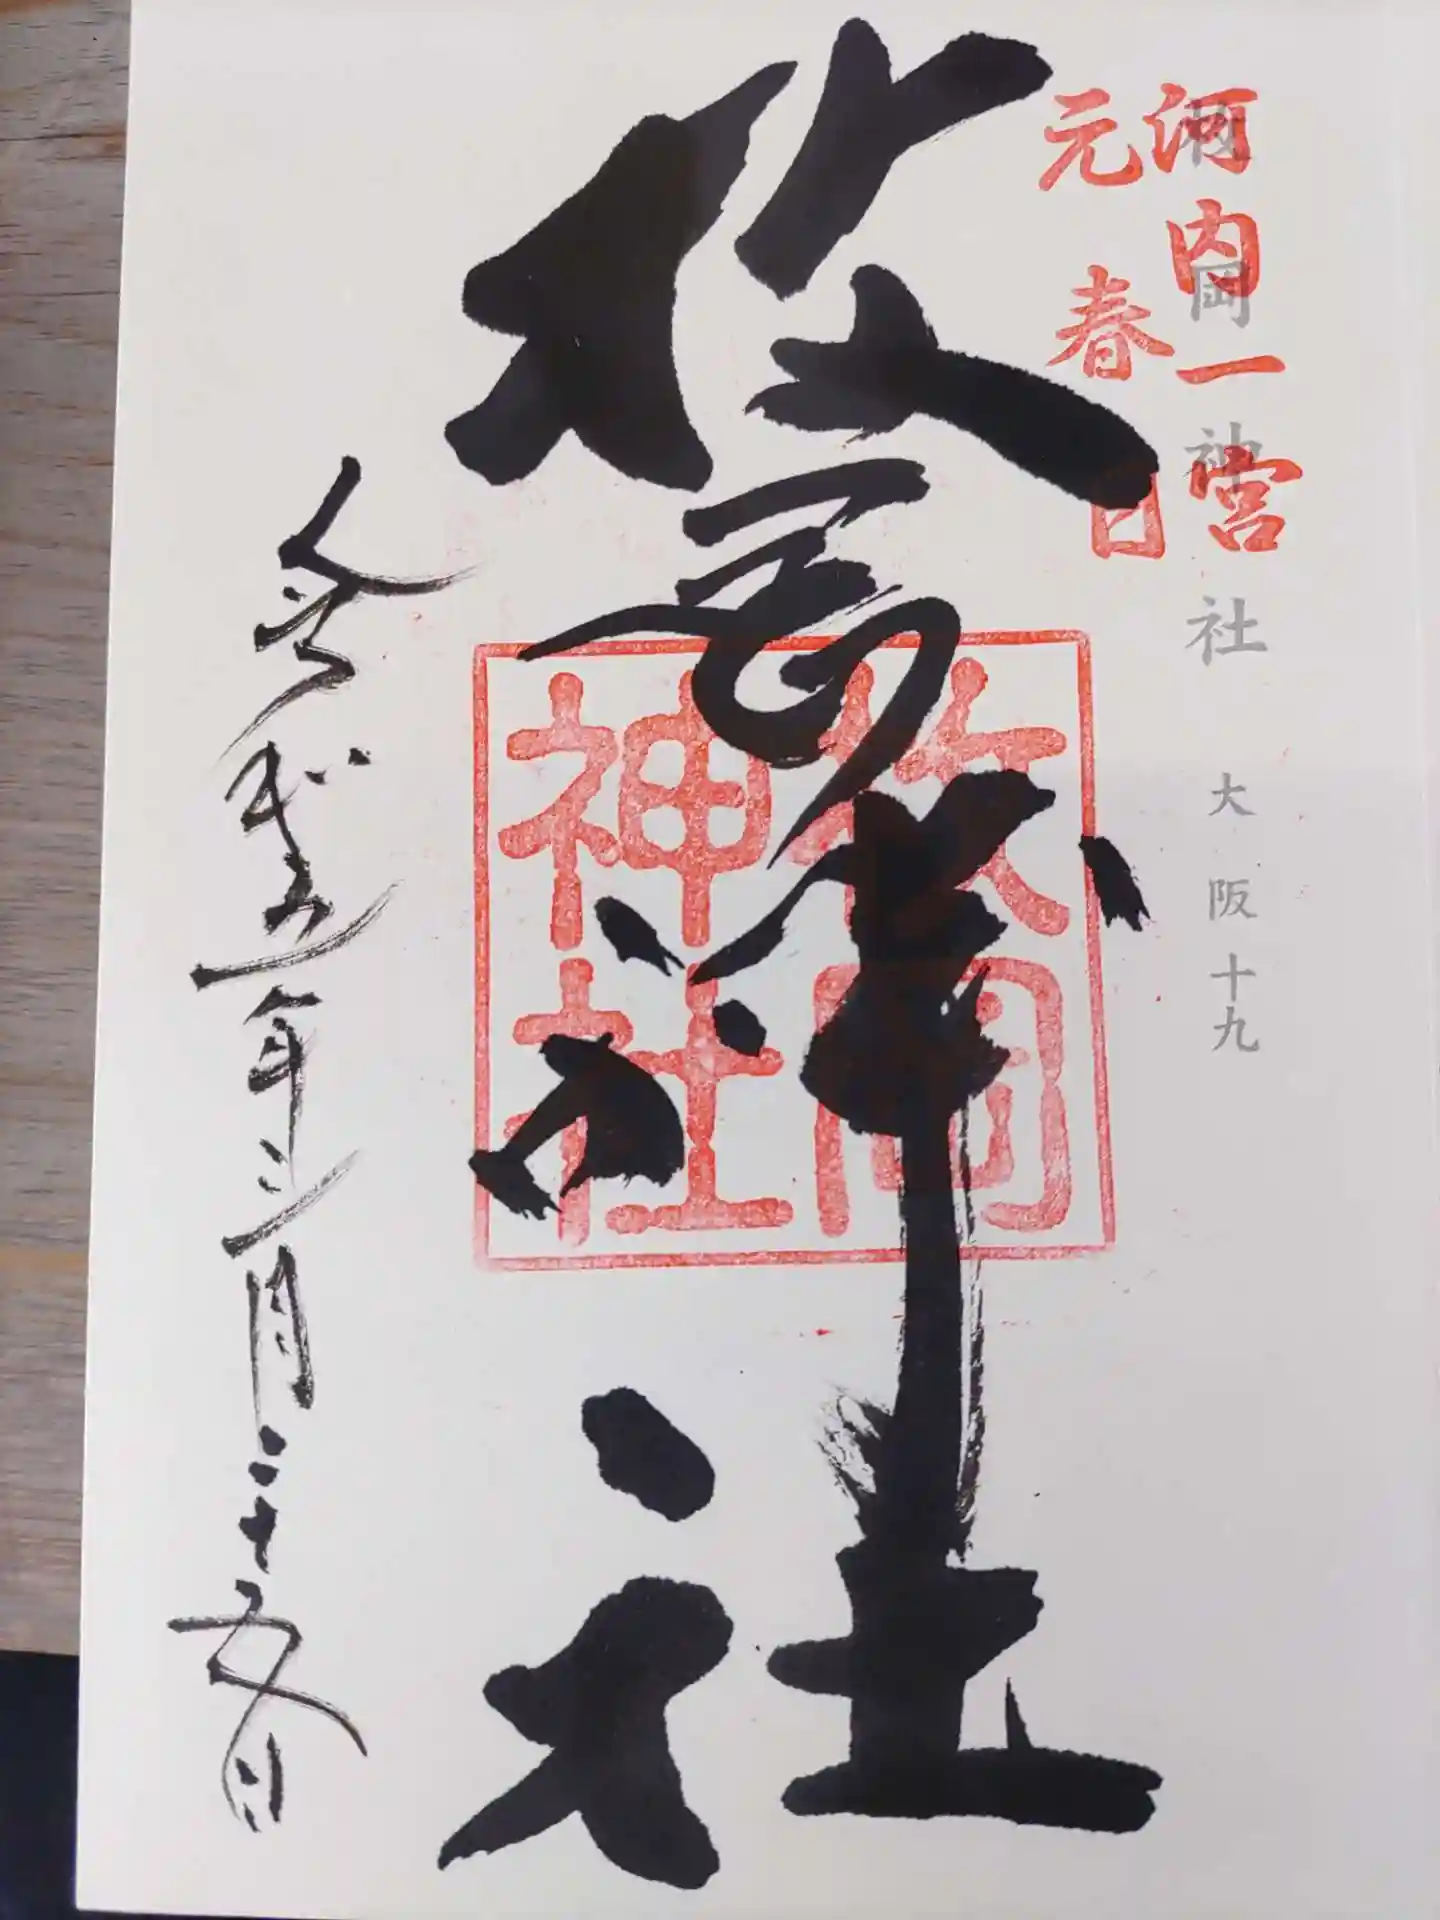 枚岡神社 大阪十九
河内一宮
元春日
枚岡神社
枚岡神社
令和五年三月二十五日